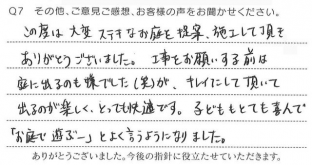 Q7 その他、ご意見ご感想、お客様の声をお聞かせください。
この度は大変ステキなお庭を提案、施工して頂き
ありがとうございました。工事をお願いする前は
庭に出るのも嫌でした(笑)が、キレイにして頂いて
出るのが楽しく、とっても快適です。子どももとても喜んで
「お庭で遊ぶー」とよく言うようになりました。
ありがとうございました。今後の指針に役立たせていただきます。